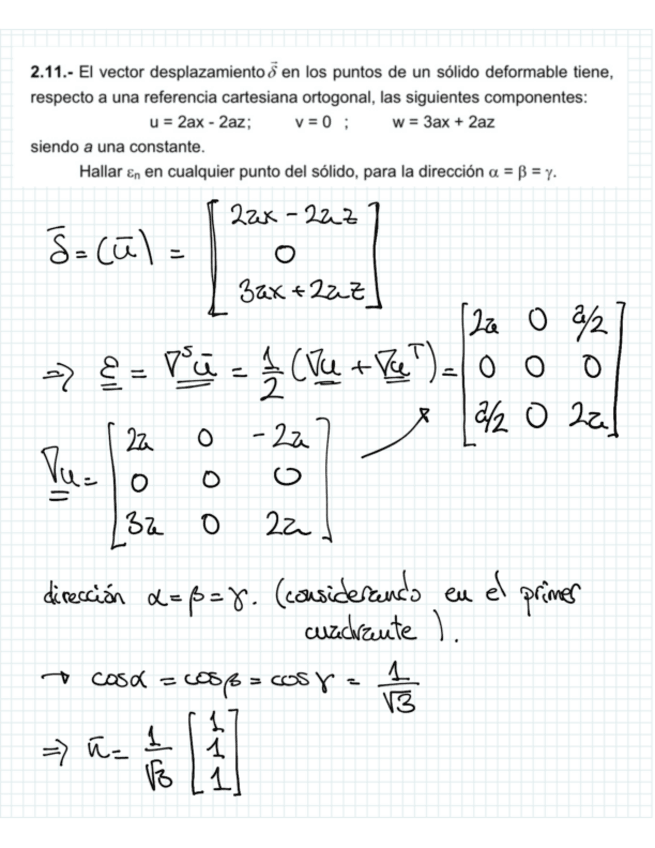 2.11.- El vector desplazamiento δ⃗ en los puntos de un sólido deformable tiene,
respecto a una referencia cartesiana ortogonal, las siguientes componentes:
u = 2ax - 2az; v = 0 ; w = 3ax + 2az
siendo a una constante.
Hallar εn en cualquier punto del sólido, para la dirección α = β = γ.
δ̄ = (ū) = [2ax - 2az
0
3ax + 2az]
⇒ ε = ∇ˢū = 1/2 (∇u + ∇uᵀ) = [2a 0 a/2
0 0 0
a/2 0 2a]
∇u = [2a 0 -2a
0 0 0
3a 0 2a]
dirección α = β = γ. (considerando en el primer
cuadrante ).
→ cosα = cosβ = cosγ = 1/√3
⇒ n̄ = 1/√3 [1
1
1]